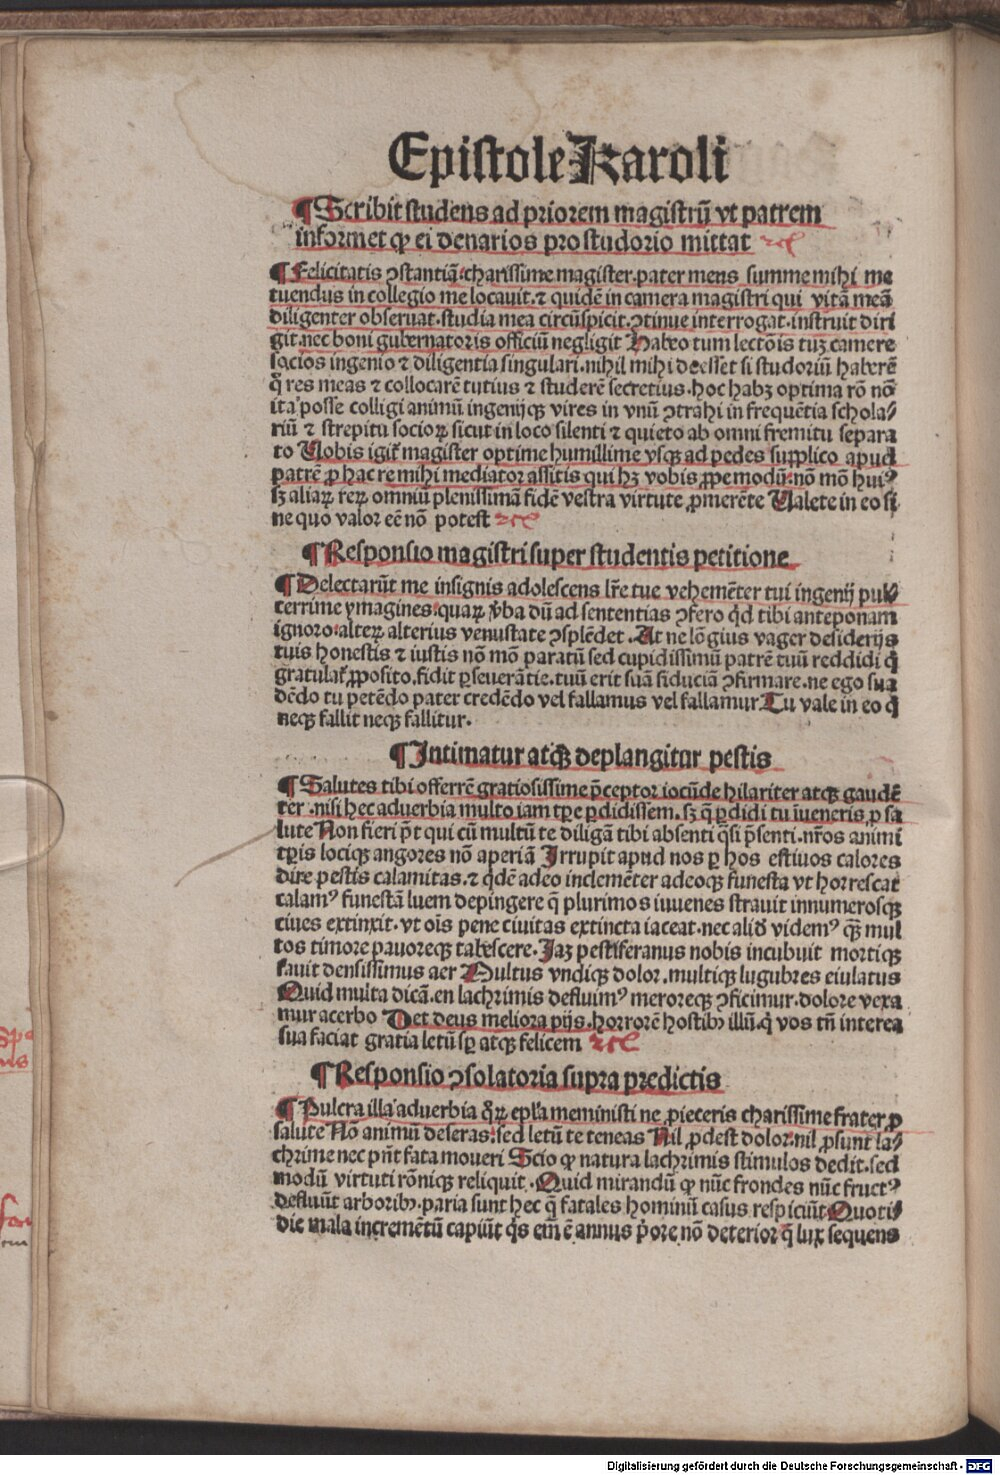 Epistole Karoli
¶Scribit studens ad priorem magistrū vt patrem
informet ꝙ ei denarios pro studorio mittat
¶Felicitatis ꝯstantiā charissime magister.pater meus summe mihi me
tuendus in collegio me locauit.⁊ quidē in camera magistri qui vitā meā
diligenter obseruat.studia mea circūspicit.ꝯtinue interrogat.instruit diri
git.nec boni gubernatoris officiū negligit Habeo tum lectōis tuꝫ camere
socios ingenio ⁊ diligentia singulari.nihil mihi deesset si studoriū haberē
q̄ res meas ⁊ collocarē tutius ⁊ studerē secretius.hoc habꝫ optima rō nō
ita posse colligi animū ingenijqꝫ vires in vnū ꝯtrahi in frequētia schola⸗
riū ⁊ strepitu socioꝝ sicut in loco silenti ⁊ quieto ab omni fremitu separa
to Uobis igit̄ magister optime humillime vsqꝫ ad pedes supplico apud
patrē ꝓ hac re mihi mediator assitis qui hꝫ vobis ꝓpe modū.nō mō hui⁹
sꝫ aliaꝝ reꝝ omniū plenissimā fidē vestra virtute ꝓmerēte Ualete in eo si
ne quo valor eē nō potest
¶Responsio magistri super studentis petitione
¶Delectarūt me insignis adolescens lr̄e tue vehemēter tui ingenij pul⸗
cerrime ymagines.quaꝝ v̄ba dū ad sententias ꝯfero qd̄ tibi anteponam
ignoro.alteꝝ alterius venustate ꝯsplēdet.At ne lōgius vager desiderijs
tuis honestis ⁊ iustis nō mō paratū sed cupidissimū patrē tuū reddidi q̇
gratulat̄ ꝓposito.fidit ꝑseuerātie.tuū erit suā fiduciā ꝯfirmare.ne ego sua
dēdo tu petēdo pater credēdo vel fallamus vel fallamur.Tu vale in eo q̇
neqꝫ fallit neqꝫ fallitur.
¶Intimatur atqꝫ deplangitur pestis
¶Salutes tibi offerrē gratiosissime p̄ceptor iocūde hilariter atqꝫ gaudē
ter.nisi hec aduerbia multo iam tꝑe ꝑdidissem.sꝫ q̄ ꝑdidi tu īueneris ꝓ sa
lute Non fieri p̄t qui cū multū te diligā tibi absenti q̄si p̄senti.nr̄os animi
tꝑis lociqꝫ angores nō aperiā Irrupit apud nos ꝑ hos estiuos calores
dire pestis calamitas.⁊ qdē adeo inclemēter adeoqꝫ funesta vt horrescat
calam⁹ funestā luem depingere q̄ plurimos iuuenes strauit innumerosqꝫ
ciues extinxit.vt oīs pene ciuitas extincta iaceat.nec aliō videm⁹ qꝫ mul
tos timore pauoreqꝫ tabescere.Jaꝫ pestiferanus nobis incubuit mortiqꝫ
fauit densissimus aer Multus vndiqꝫ dolor.multiqꝫ lugubres eiulatus
Quid multa dicā.en lachrimis defluim⁹ meroreqꝫ ꝯficimur.dolore vexa
mur acerbo Det deus meliora pijs.horrorē hostibꝫ illū.q̇ vos tn̄ interea
sua faciat gratia letū sꝑ atqꝫ felicem
¶Responsio ꝯsolatoria supra predictis
¶Pulcra illa aduerbia q̄ꝝ epl̄a meministi ne ꝓieceris charissime frater ꝓ
salute Nō animū deseras.sed letū te teneas Nil ꝓdest dolor.nil ꝓsunt la⸗
chrime nec pn̄t fata moueri Scio ꝙ natura lachrimis stimulos dedit.sed
modū virtuti rōniqꝫ reliquit.Quid mirandū ꝙ nūc frondes nūc fruct⁹
defluūt arboribꝫ.paria sunt hec q̄ fatales hominū casus respiciūt Quoti⸗
die mala incremētū capiūt q̄s em̄ ē annus p̄ore nō deterior q̄ lux sequens
Digitalisierung gefördert durch die Deutsche Forschungsgemeinschaft - DFG